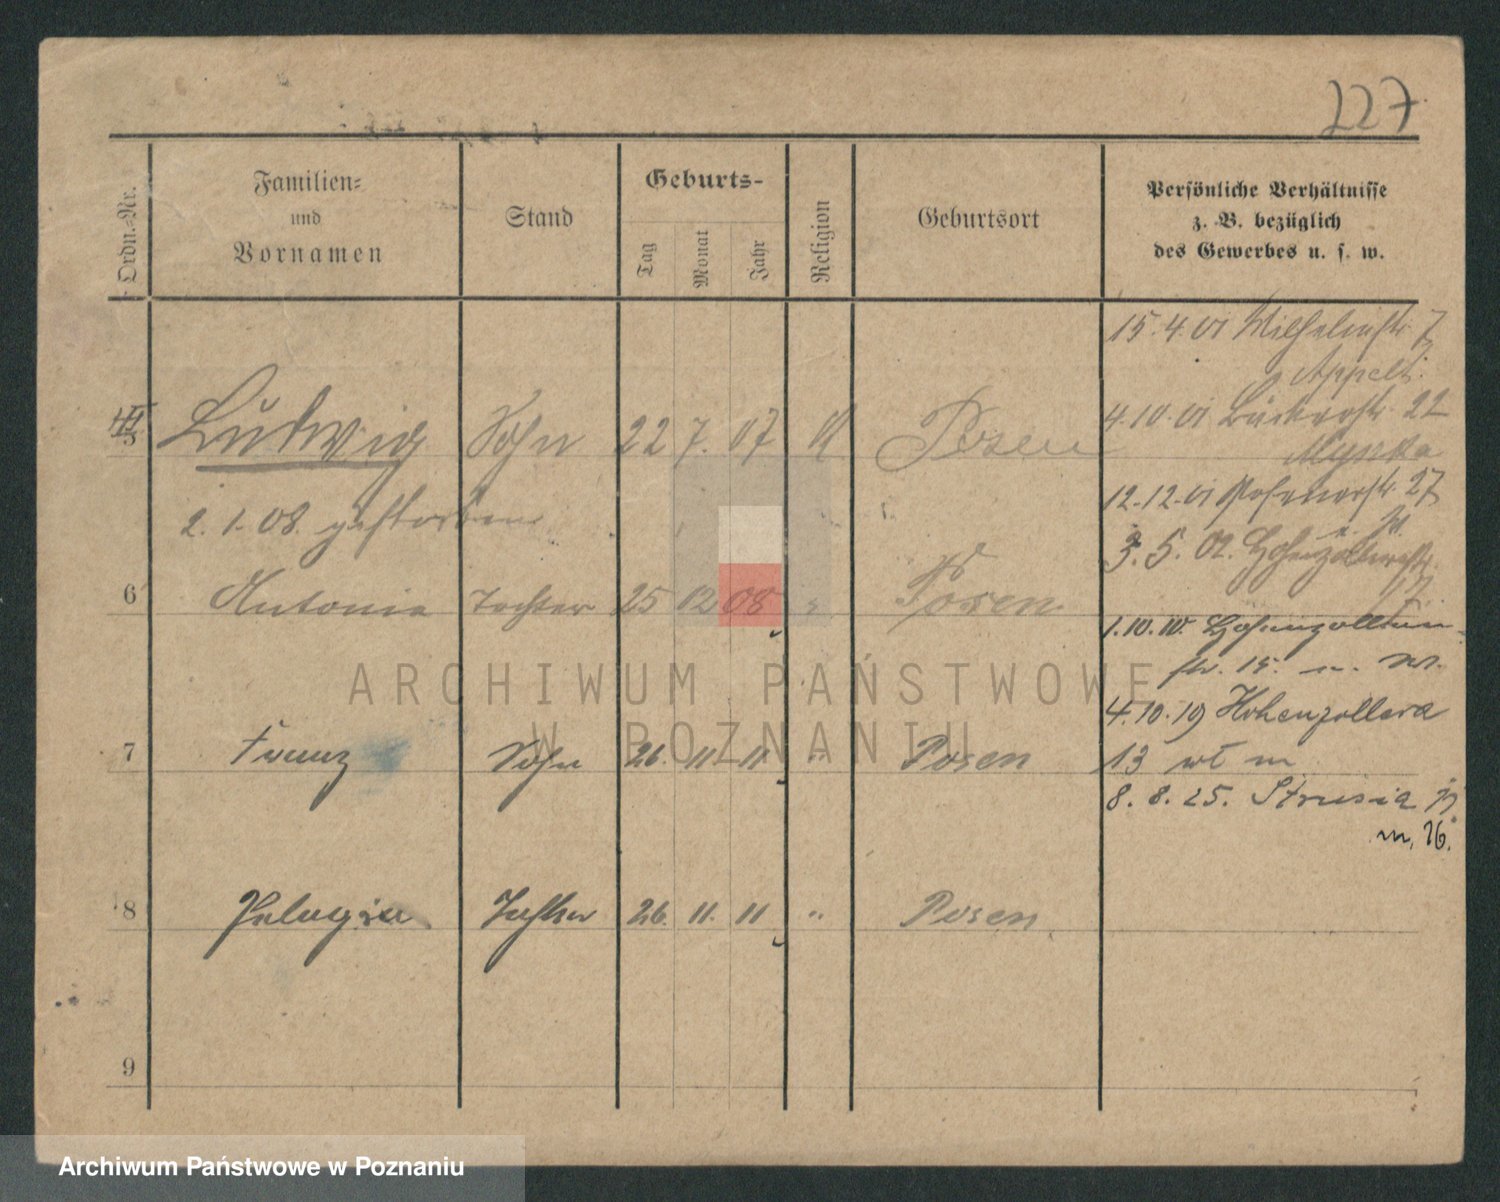 227
Ordn.-Nr.
Familien-
und
Vornamen
Stand
Geburts-
Tag
Monat
Jahr
Religion
Geburtsort
Persönliche Verhältnisse
z. B. bezüglich
des Gewerbes u. s. w.
15.4.01 Wilhelmstr. 7
Appelt.
5 Ludwig Sohn 22 7. 07 K Posen
4.10.01 22
2.1.08. gestorben
12.12.01 Posenerstr. 27
3.5.02. Hohenzollernstr.
6 Antonie Tochter 25 12 08 " Posen
1.10.10. Hohenzollern
str. 15.
4.10.19 Hohenzollern
7 Franz Sohn 26. 11 11 " Posen
13 m
8.8.25. Strusia
m. 16.
8 Pelagia Tochter 26. 11. 11 " Posen
9
ARCHIWUM PAŃSTWOWE
W POZNANIU
Archiwum Państwowe w Poznaniu